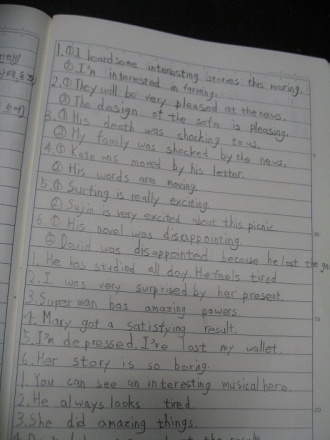 1. ① I heard some interesting stories this moring.
② I'm interested in farming.
2. ① They will be very pleased at the news.
② The design of the sofa is pleasing.
3. ① His death was shocking to us.
② My family was shocked by the news.
4. ① Kate was moved by his letter.
② His words are moving.
5. ① Surfing is really exciting.
② Sujin is very excited about this picnic.
6. ① His novel was disappointing.
② David was disappointed because he lost the
1. He has studied all day. He feels tired
2. I was very surprised by her present.
3. Superman has amazing powers
4. Mary got a satisfying result.
5. I'm depressed. I've lost my wallet.
6. Her story is so boring.
1 You can see an interesting musical here.
2. He always looks tired.
3. She did amazing things.